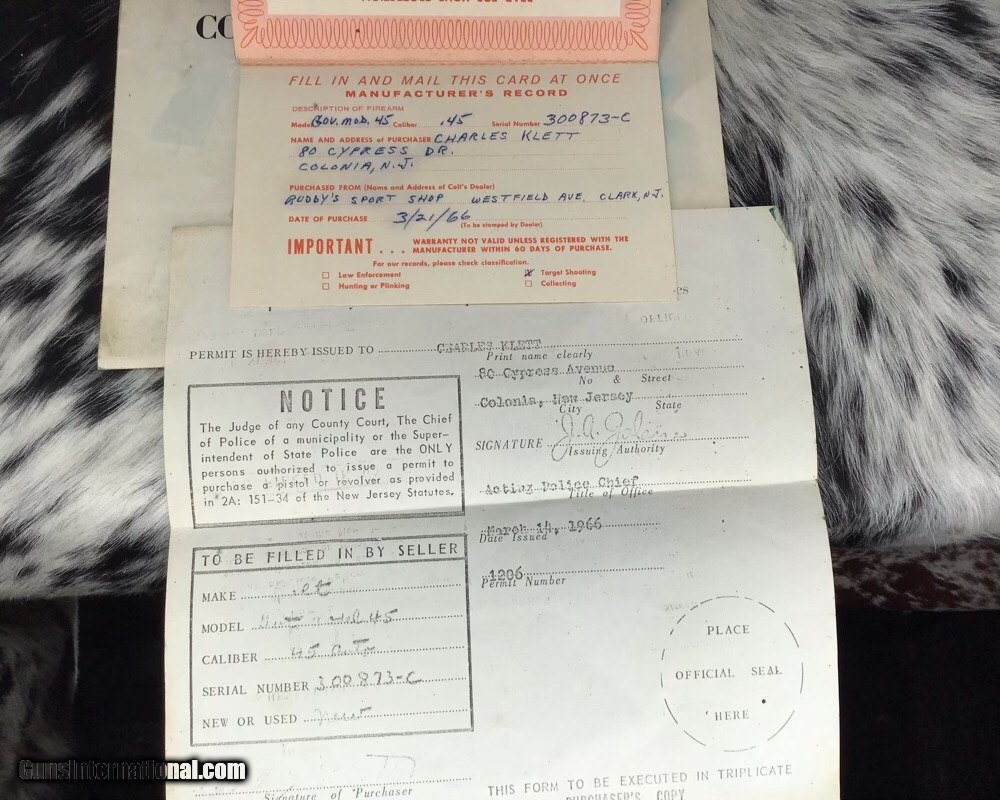 CO
FILL IN AND MAIL THIS CARD AT ONCE
MANUFACTURER'S RECORD
DESCRIPTION OF FIREARM
Model GOV. MOD. 45 Caliber .45 Serial Number 300873-C
NAME AND ADDRESS of PURCHASER CHARLES KLETT
80 CYPRESS DR.
COLONIA, N.J.
PURCHASED FROM (Name and Address of Colt's Dealer)
BUDDY'S SPORT SHOP WESTFIELD AVE. CLARK, N.J.
DATE OF PURCHASE 3/21/66
(To be stamped by Dealer)
IMPORTANT . . . WARRANTY NOT VALID UNLESS REGISTERED WITH THE
MANUFACTURER WITHIN 60 DAYS OF PURCHASE.
For our records, please check classification.
Law Enforcement
X Target Shooting
Hunting or Plinking
Collecting
PERMIT IS HEREBY ISSUED TO CHARLES KLETT
Print name clearly
80 Cypress Avenue
No & Street
Colonia, New Jersey
City State
SIGNATURE
Issuing Authority
Acting Police Chief
Title of Office
March 14, 1966
Date Issued
1206
Permit Number
NOTICE
The Judge of any County Court, The Chief
of Police of a municipality or the Super-
intendent of State Police are the ONLY
persons authorized to issue a permit to
purchase a pistol or revolver as provided
in 2A: 151-34 of the New Jersey Statutes.
TO BE FILLED IN BY SELLER
MAKE
MODEL 45
CALIBER 45 Auto
SERIAL NUMBER 300873-C
NEW OR USED New
PLACE
OFFICIAL SEAL
HERE
Signature of Purchaser
THIS FORM TO BE EXECUTED IN TRIPLICATE
PURCHASER'S COPY
GunsInternational.com